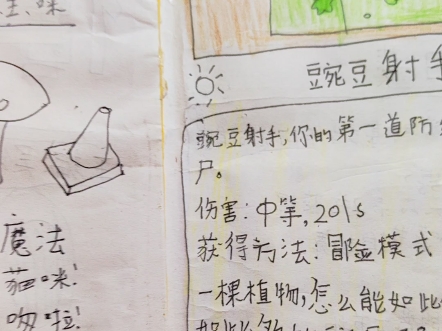 豌豆射手
豌豆射手,你的第一道防
尸。
伤害:中等,20/s
获得方法:冒险模式
一棵植物,怎么能如此
魔法
猫咪!
吻啦!